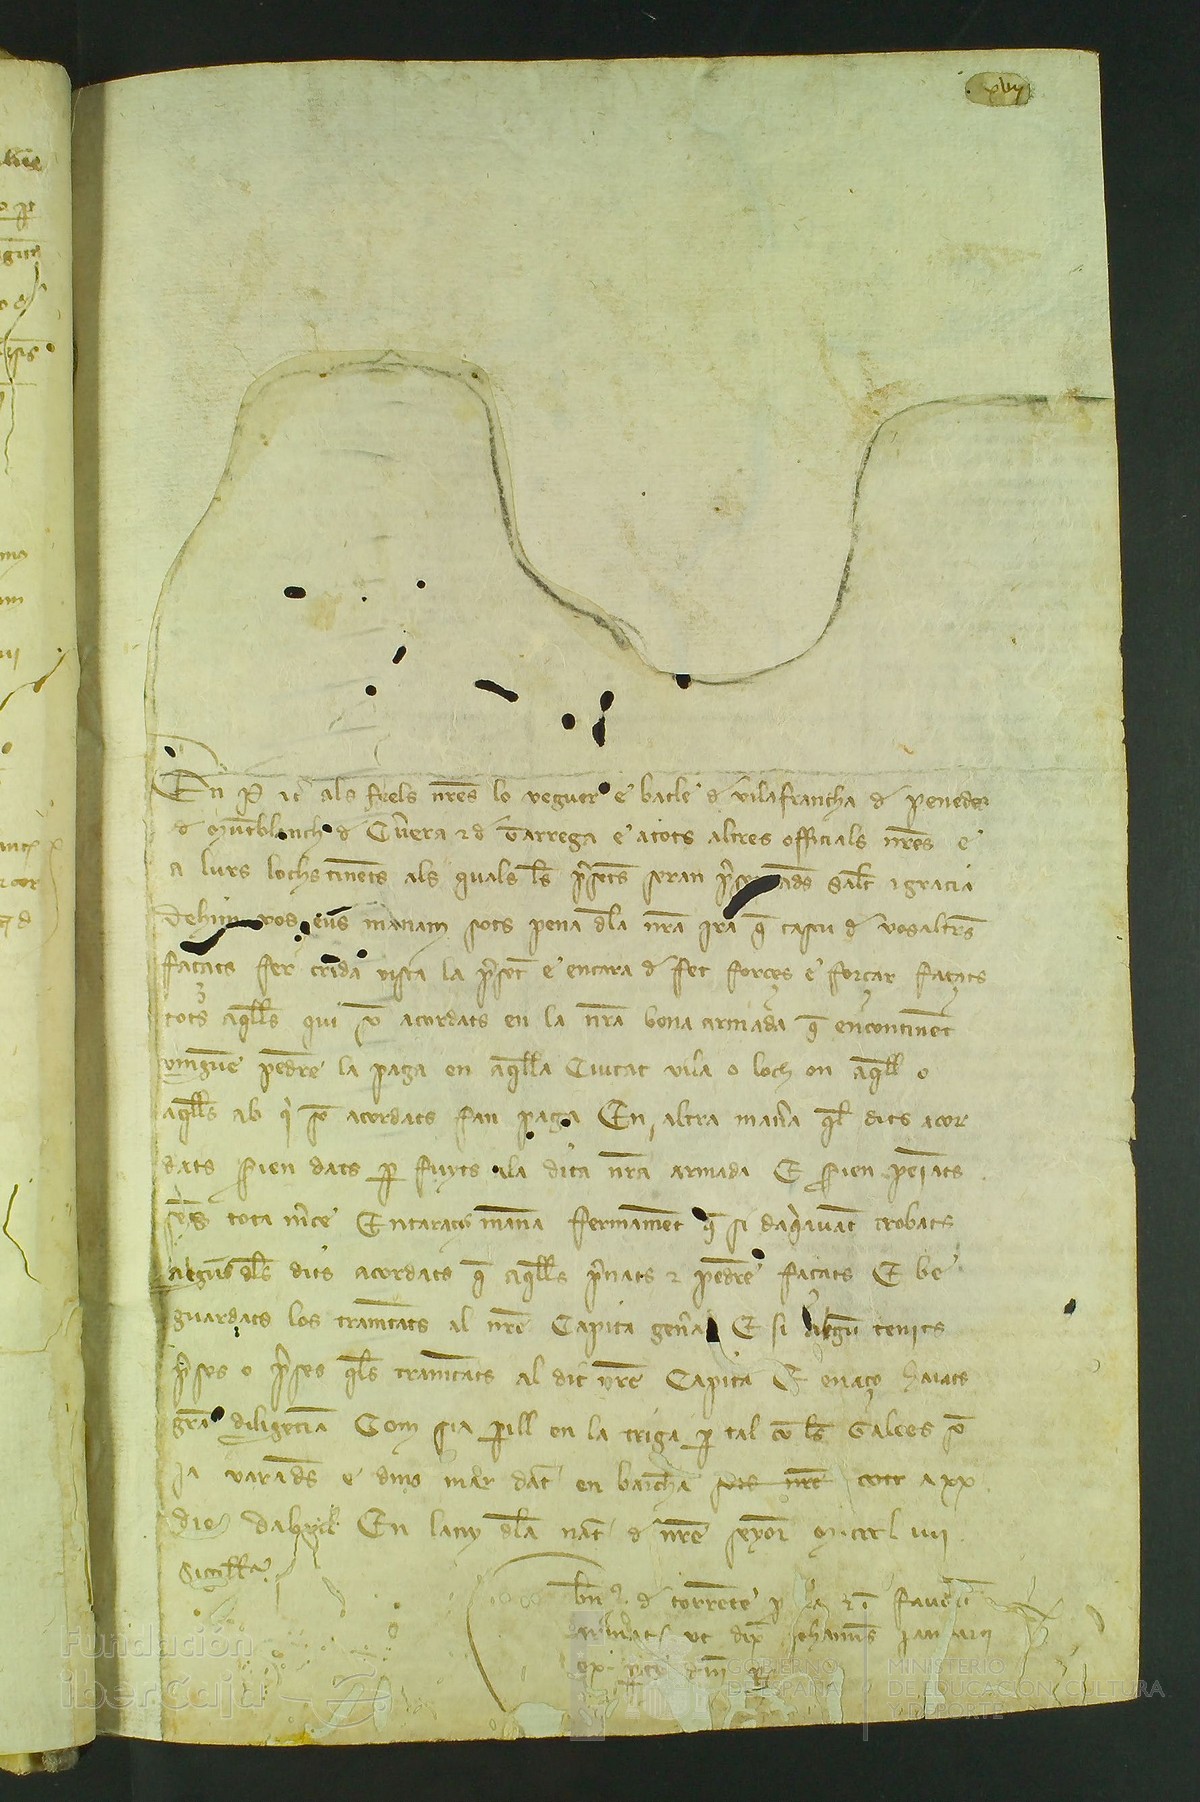 xvij
En P etc als feels nres lo veguer e batle d Vilafrancha d Penedes
d Muntblanch d Cervera e d Tarrega e a tots altres officials nres e
a lurs lochstinents als quals les presents seran presentades salut e gracia
Dehim vos eus manam sots pena dla nra ira q cascu d vosaltres
façats fer crida vista la present e encara d fet forces e forçar façats
tots aqlls qui son acordats en la nra bona armada q encontinent
vinguen pendre la paga en aqlla Ciutat vila o loch on aqll o
aqlls ab qi son acordats fan paga En altra manera qls dits acor
dats sien dats per fuyts a la dita nra armada E sien peniats
sens tota merce Encara us manam fermament q si d aqi avant trobats
alguns dels dits acordats q aqlls prenats e pendre façats E be
guardats los trametats al nre Capita general E si algun tenits
preses o preses qls trametats al dit nre Capita E en aço haiats
gran diligencia Com sia perill en la triga per tal com les Galees son
ja varades e dins mar dat en Barchna sots nre a xx
dies d abril En lany dla nat d nre senyor M CCC L IIII
Sigill
Bn d torrente p
ut
ex parte dni R
Fundación
iberCaja
GOBIERNO
DE ESPAÑA
MINISTERIO
DE EDUCACIÓN, CULTURA
Y DEPORTE